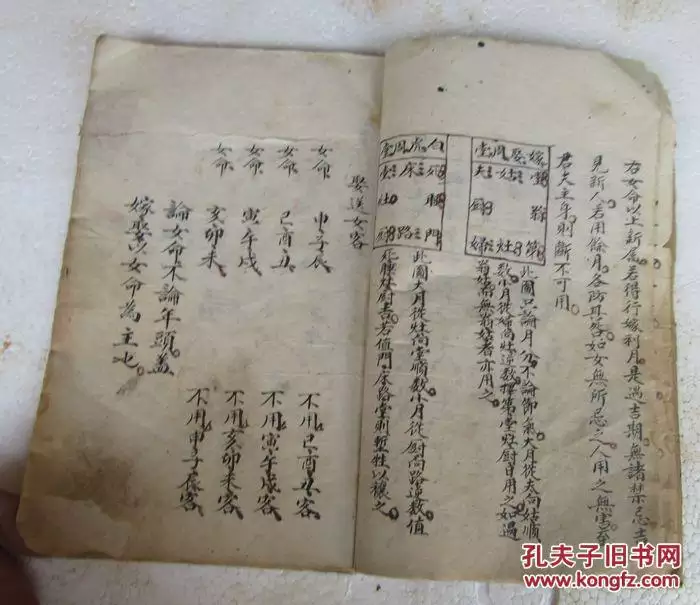 右女命以上新若得行嫁利月是遇吉期無諸禁忌
見新人若用餘月各防其咎如女無所忌之人用之無害至
君夫主年則斷不可用
嫁娶周堂
堂 姑 夫
翁 廚
第 灶 婦
此圖只論月分不論節氣大月從夫向姑順
數小月從婦向灶逆數擇第堂灶廚日用之如遇
翁姑而無翁姑者亦用之
白虎周堂
床 堂
睡 灶
門 路 廚
此圖大月從灶向堂順數小月從廚向路逆數值
死睡灶廚吉若值門床路堂則牲以禳之
娶送女客
女命 申子辰 不用巳酉丑客
女命 巳酉丑 不用寅午戌客
女命 寅午戌 不用亥卯未客
女命 亥卯未 不用申子辰客
論女命不論年頭蓋
嫁娶以女命為主也
孔夫子旧书网
www.kongfz.com